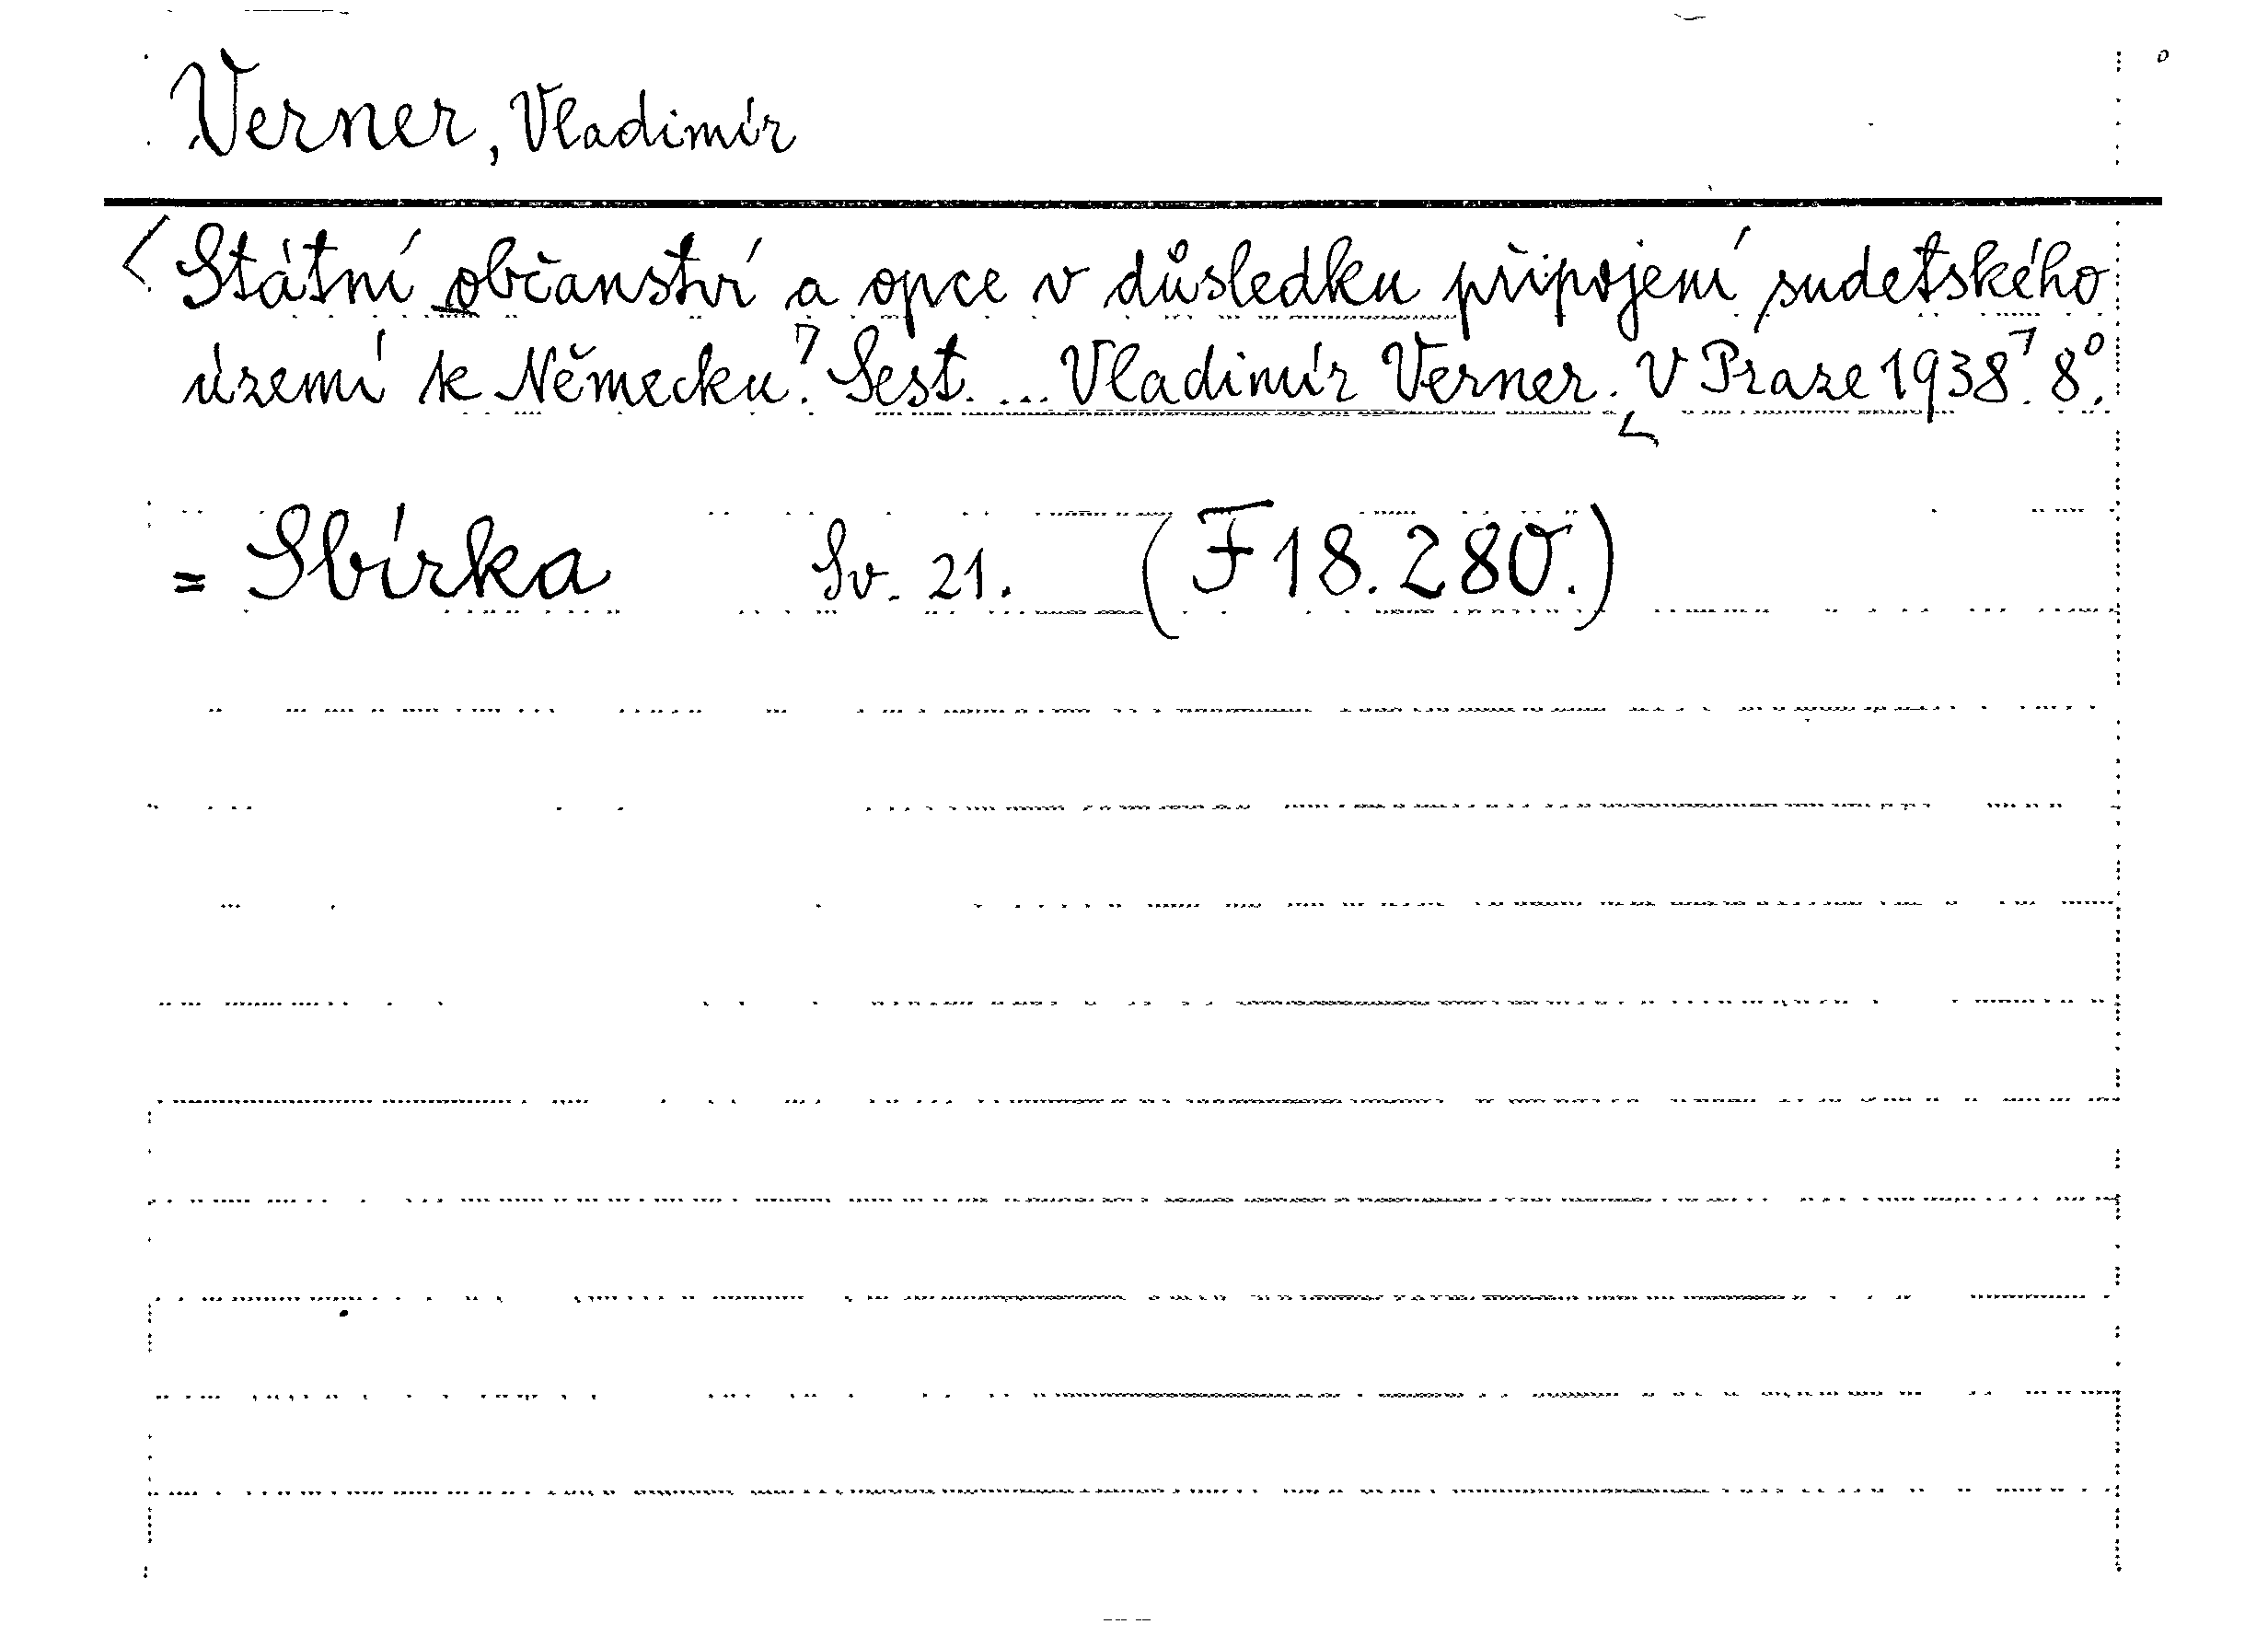 Verner, Vladimír
Státní občanství a opce v důsledku připojení sudetského
území k Německu. Sest. ... Vladimír Verner. V Praze 1938. 8°.
= Sbírka Sv. 21. (F 18.280.)